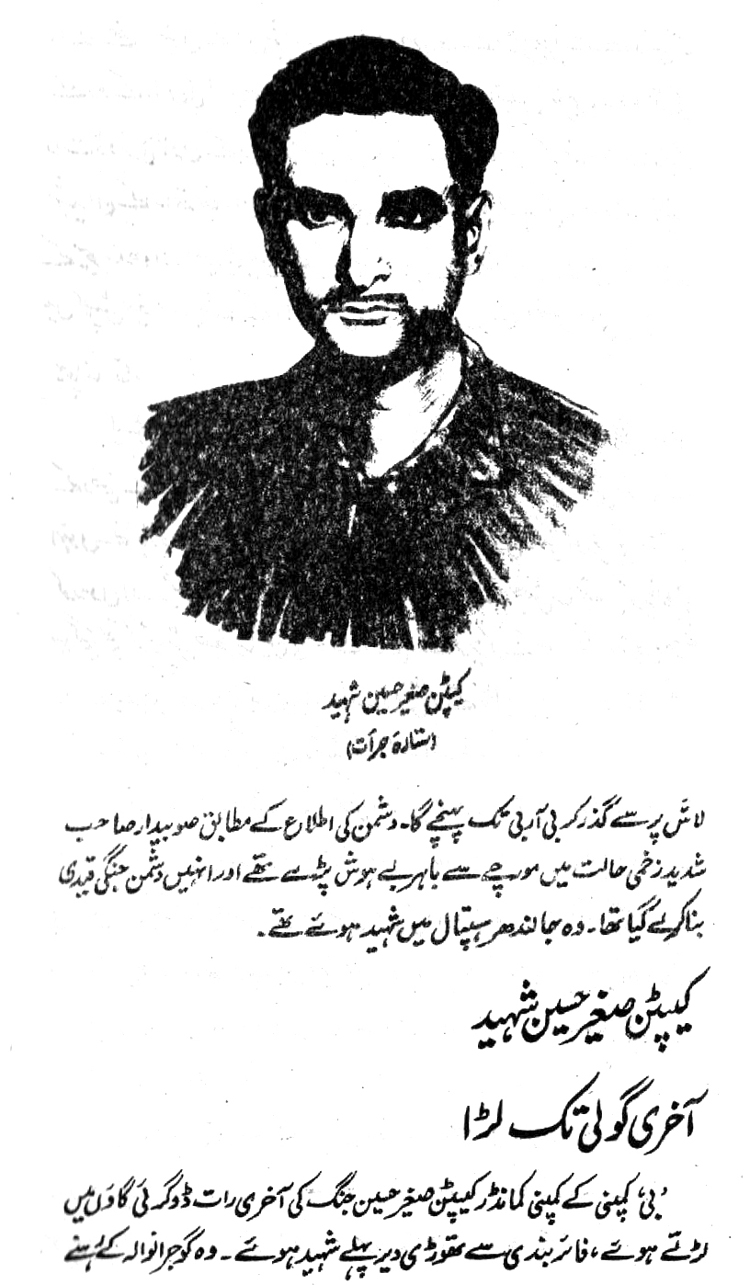 کیپٹن صغیر حسین شہید
(ستارۂ جرأت)
لاش پر سے گذر کر بی آر بی تک پہنچے گا۔ دشمن کی اطلاع کے مطابق صوبیدار صاحب
شدید زخمی حالت میں مورچے سے باہر بے ہوش پڑے تھے اور انہیں دشمن جنگی قیدی
بنا کر لے گیا تھا۔ وہ جالندھر ہسپتال میں شہید ہوئے تھے۔
کیپٹن صغیر حسین شہید
آخری گولی تک لڑا
'بی' کمپنی کے کمپنی کمانڈر کیپٹن صغیر حسین جنگ کی آخری رات ڈوگرئی گاؤں میں
لڑتے ہوئے، فائر بندی سے تھوڑی دیر پہلے شہید ہوئے۔ وہ گوجرانوالہ کے رہنے